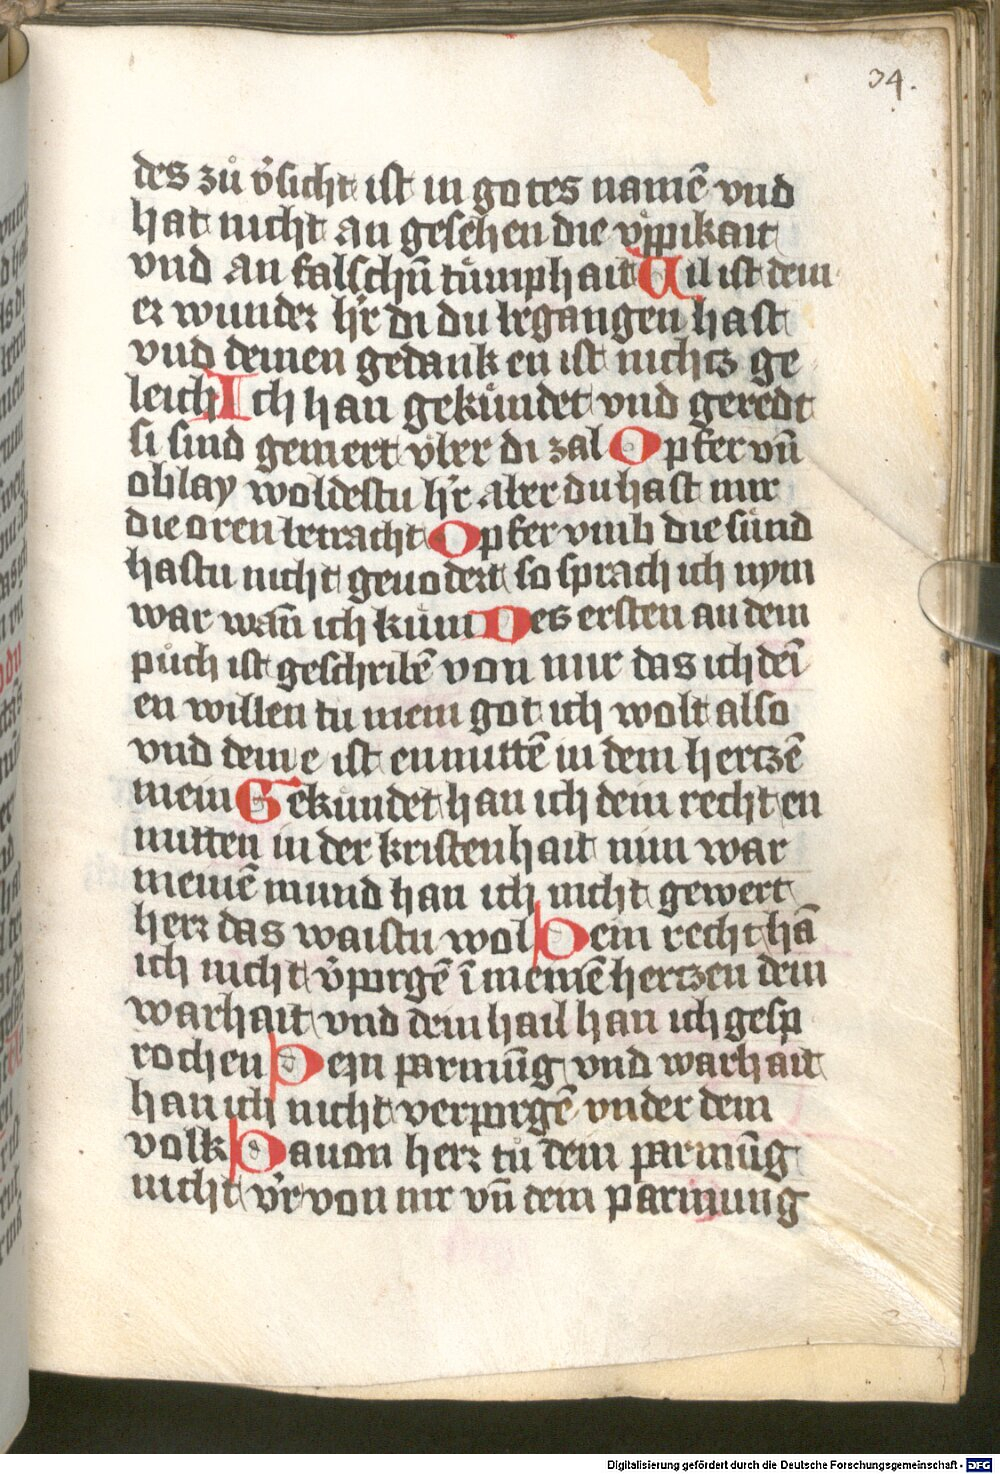 34.
des zů v̓sicht ist in gotes namē vnd
hat nicht an gesehen die vͤppikait
vnd an falschū tůmphait Uil ist dein
er wunder h̓r di du begangen hast
vnd deinen gedanken ist nichtz ge
leich Ich han gekündet vnd geredt
si sind gemert vͤber di zal Opfer vn̄
oblay woldestu h̓r aber du hast mir
die oren betracht Opfer vmb die sünd
hastu nicht geuodert so sprach ich nym
war wan̄ ich kům Des ersten an dem
půch ist geschribē von mir das ich dei
en willen tu mein got ich wolt also
vnd dein e ist enmittē in dem hertzē
mein Gekündet han ich dein recht en
mitten in der kristenhait nim war
meinē mund han ich nicht gewert
herr das waistu wol Dein recht hā
ich nicht v̓porgē ī meinē hertzen dein
warhait vnd dein hail han ich gesp
rochen Dein parmūg vnd warhait
han ich nicht verporgē vnder dem
volk Dauon herr tů dein parmūg
nicht v̓r von mir vn̄ dein parmung
Digitalisierung gefördert durch die Deutsche Forschungsgemeinschaft - DFG